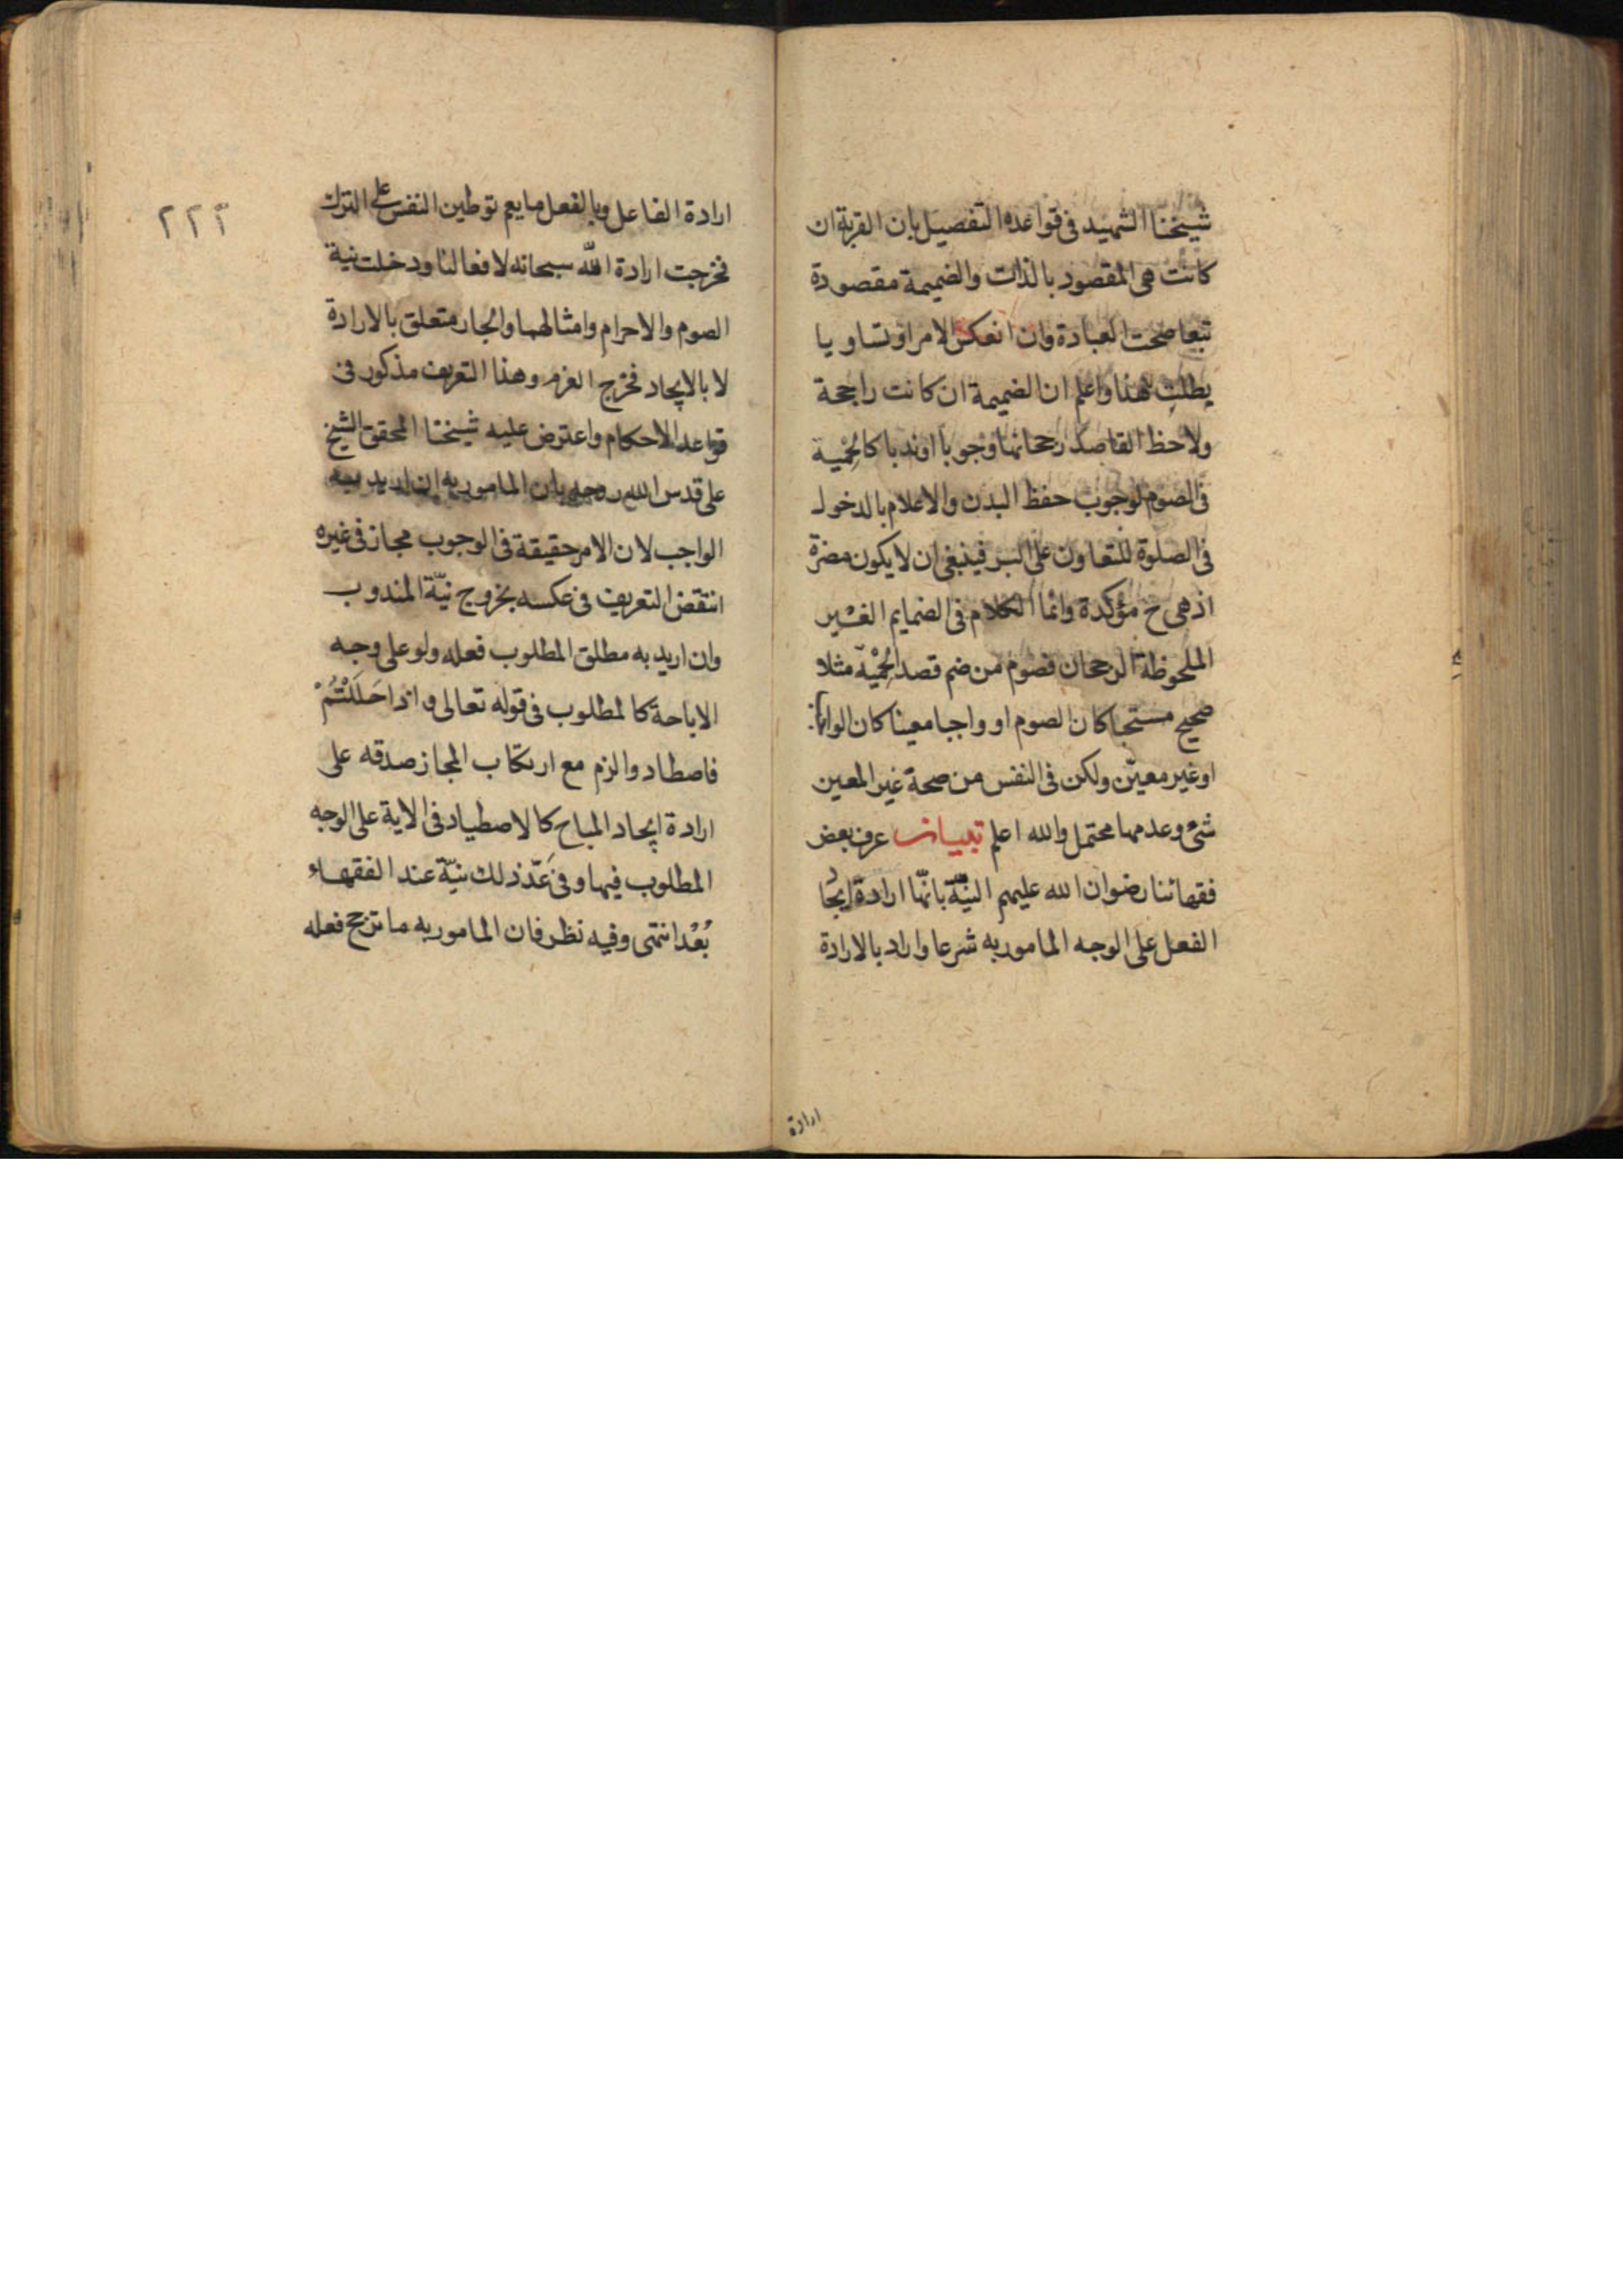 شيخنا الشهيد فى قواعده التفصيل بان القربة ان
كانت هى المقصود بالذات والضميمة مقصودة
تبعا صحت العبادة وان انعكس الامر او تساويا
بطلت هذا واعلم ان الضميمة ان كانت راجحة
ولاحظ القاصد رجحانها وجوبا او ندبا كالحمية
فى الصوم لوجوب حفظ البدن والاعلام بالدخول
فى الصلوة للتعاون على البر فينبغى ان لا يكون مضرة
اذ هى ح مؤكدة وانما الكلام فى الضمايم الغير
الملحوظة الرجحان فصوم من ضم قصد الحِمْيَة مثلا
صحيح مستحبا كان الصوم او واجبا معينا كان الواجب
او غير معيّن ولكن فى النفس من صحة غير المعين
شئ وعدمها محتمل والله اعلم تبيان عرف بعض
فقهائنا رضوان الله عليهم النيّة بانّها ارادة ايجاد
الفعل على الوجه المامور به شرعا واراد بالارادة
ارادة
٢٢٢
ارادة الفاعل وبالفعل ما يعم توطين النفس على الترك
فخرجت ارادة الله سبحانه لافعالنا ودخلت نية
الصوم والاحرام وامثالهما والجار متعلق بالارادة
لا بالايجاد فخرج العزم وهذا التعريف مذكور فى
قواعد الاحكام واعترض عليه شيخنا المحقق الشيخ
على قدس الله روحه بان المامور به ان اريد به
الواجب لان الامر حقيقة فى الوجوب مجاز فى غيره
انتقض التعريف فى عكسه بخروج نيّة المندوب
وان اريد به مطلق المطلوب فعله ولو على وجه
الاباحة كالمطلوب فى قوله تعالى واذا حَلَلْتُمْ
فاصطادوا لزم مع ارتكاب المجاز صدقه على
ارادة ايجاد المباح كالاصطياد فى الاية على الوجه
المطلوب فيها وفى عَدّ ذلك نيّة عند الفقهاء
بُعْد انتهى وفيه نظر فان المامور به ما ترجح فعله